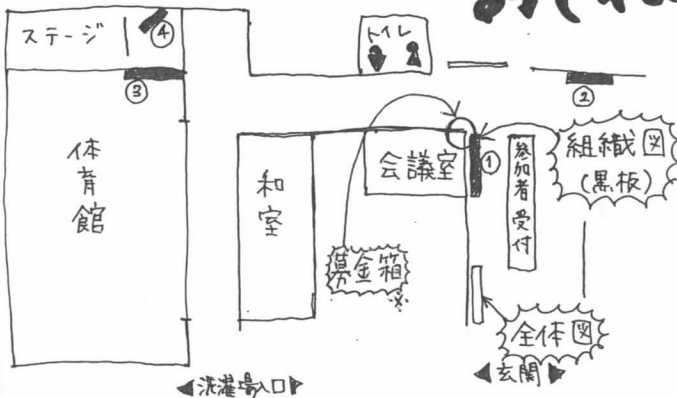 ステージ
④
トイレ
③
②
体育館
和室
会議室
①
参加者受付
組織図
(黒板)
募金箱
※
全体図
◀洗濯場入口▶
◀玄関▶